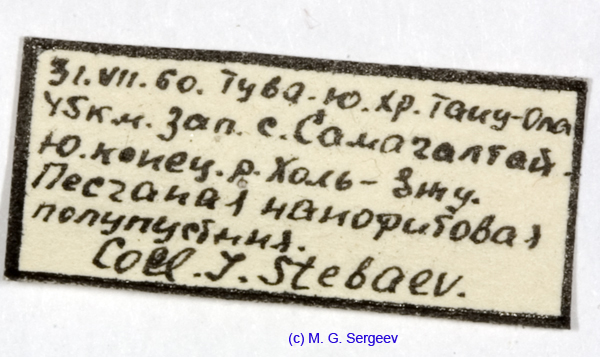 31.VII.60. Тува. Ю. Хр. Тану-Ола
45км. зап. с. Самагалтай.
Ю. конец. р. Холь-Эжу.
Песчаная нанофитовая
полупустыня.
Coll. I. Stebaev.
(c) M. G. Sergeev